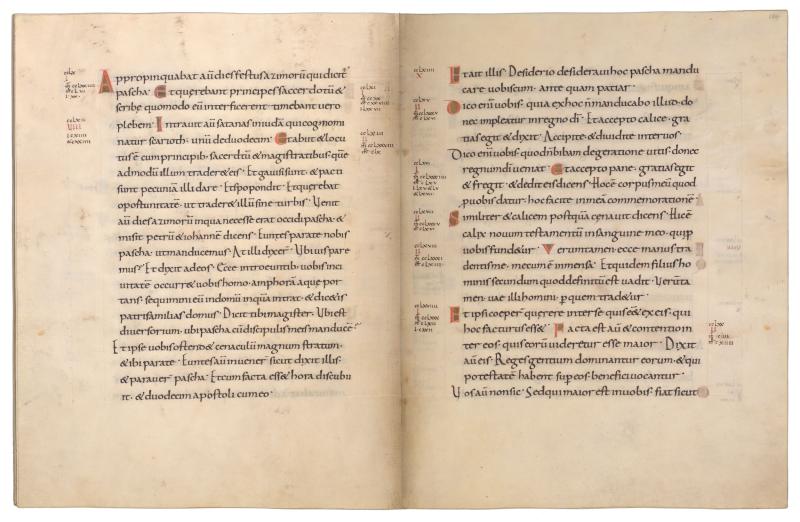 Appropinquabat aū dies festus azimorū qui dicit'
pascha · Et querebant principes sacerdotū &
scribę quomodo eū interficerent · timebant vero
plebem · Intravit aū satanas in iudā qui cognomi
natur scarioth · unū de duodecim · Et abiit & locu
tus ē cum principib; sacerdotū & magistratibus · quē
admodū illum trader& eis · Et gavisi sunt · & pacti
sunt pecuniā illi dare · Et spopondit · Et querebat
oportunitatē · ut trader& illū sine turbis · Venit
aū dies azimorū in qua necesse erat occidi pascha · &
misit petrū & iohannē dicens · Euntes parate nobis
pascha · ut manducemus · At illi dixer̄ · Ubi vis pare
mus · Et dixit ad eos · Ecce introeuntib; vobis in ci
vitatē · occurr& vobis homo · amphorā aquę por
tans · sequimini eū in domū in quā intrat · & dic&is
patri familias domus · Dicit tibi magister · Ubi est
diversorium · ubi pascha cū discipulis meis manducē
Et ipse vobis ostend& cenaculū magnum stratum ·
& ibi parate · Euntes aū invener̄ sicut dixit illis ·
& paraver̄ pascha · Et cum facta ess& hora discubu
it · & duodecim apostoli cum eo ·
Et ait illis · Desiderio desideravi hoc pascha mandu
care vobiscum · ante quam patiar ·
Dico enī vobis · quia ex hoc n̄ manducabo illud · do
nec impleatur in regno dī · Et accepto calice · gra
tias egit & dixit · Accipite · & dividite inter vos ·
Dico enī vobis · quod n̄ bibam de generatione vitis · donec
regnum dī veniat · Et accepto pane · gratias egit
& fregit · & dedit eis dicens · Hoc ē corpus meū quod
p vobis datur · hoc facite in meā commemorationē
Similiter & calicem postquā cenavit dicens · Hic ē
calix novum testamentū in sanguine meo · qui p
vobis fund&ur · Veruntamen · ecce manus tra
dentis me · mecum ē in mensa · Et quidem filius ho
minis secundum quod definitū est vadit · Verūta
men · vae illi homini · p quem trad&ur ·
Et ipsi coeper̄ querere inter se quis ess& ex eis · qui
hoc facturus ess& · Facta est aū & contentio in
ter eos · quis eorū videretur esse maior · Dixit
aū eis · Reges gentium dominantur eorum · & qui
potestatē habent sup eos · benefici vocantur ·
Vos aū non sic · Sed qui maior est in vobis · fiat sicut